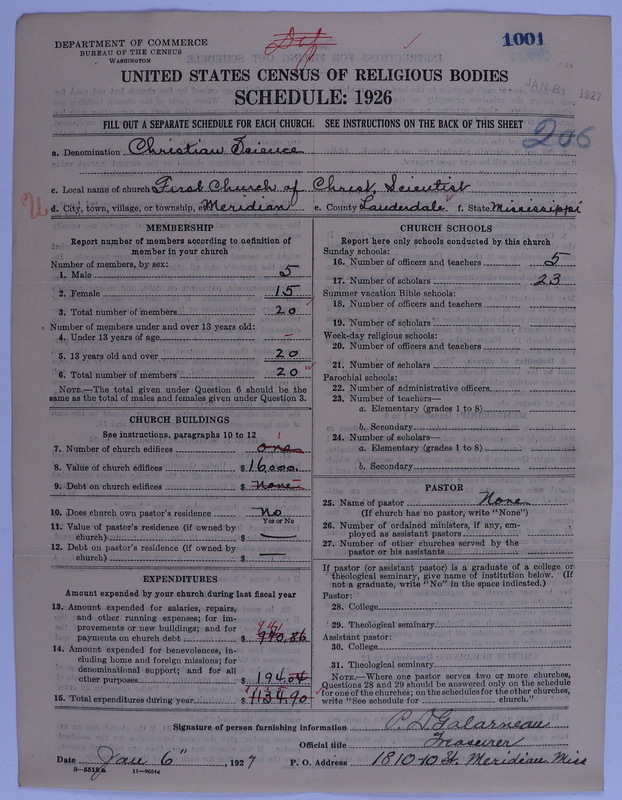 DEPARTMENT OF COMMERCE
BUREAU OF THE CENSUS
WASHINGTON
1001
JAN 31 1927
UNITED STATES CENSUS OF RELIGIOUS BODIES
SCHEDULE: 1926
FILL OUT A SEPARATE SCHEDULE FOR EACH CHURCH. SEE INSTRUCTIONS ON THE BACK OF THIS SHEET
206
a. Denomination Christian Science
c. Local name of church First Church of Christ, Scientist
d. City, town, village, or township, etc. Meridian e. County Lauderdale f. State Mississippi
MEMBERSHIP
Report number of members according to definition of
member in your church
Number of members, by sex:
1. Male 5
2. Female 15
3. Total number of members 20
Number of members under and over 13 years old:
4. Under 13 years of age –
5. 13 years old and over 20
6. Total number of members 20
NOTE.—The total given under Question 6 should be the
same as the total of males and females given under Question 3.
CHURCH BUILDINGS
See instructions, paragraphs 10 to 12
7. Number of church edifices one 1
8. Value of church edifices $ 16,000.
9. Debt on church edifices $ None
10. Does church own pastor's residence No
Yes or No
11. Value of pastor's residence (if owned by
church) $ —
12. Debt on pastor's residence (if owned by
church) $ —
EXPENDITURES
Amount expended by your church during last fiscal year
13. Amount expended for salaries, repairs,
and other running expenses; for im-
provements or new buildings; and for
payments on church debt $ 940.86 941
14. Amount expended for benevolences, in-
cluding home and foreign missions; for
denominational support; and for all
other purposes $ 194.04
15. Total expenditures during year $ 1134.90
CHURCH SCHOOLS
Report here only schools conducted by this church
Sunday schools:
16. Number of officers and teachers 5
17. Number of scholars 23
Summer vacation Bible schools:
18. Number of officers and teachers
19. Number of scholars
Week-day religious schools:
20. Number of officers and teachers
21. Number of scholars
Parochial schools:
22. Number of administrative officers
23. Number of teachers—
a. Elementary (grades 1 to 8)
b. Secondary
24. Number of scholars—
a. Elementary (grades 1 to 8)
b. Secondary
PASTOR
25. Name of pastor None
(If church has no pastor, write "None")
26. Number of ordained ministers, if any, em-
ployed as assistant pastors
27. Number of other churches served by the
pastor or his assistants
If pastor (or assistant pastor) is a graduate of a college or
theological seminary, give name of institution below. (If
not a graduate, write "No" in the space indicated.)
Pastor:
28. College
29. Theological seminary
Assistant pastor:
30. College
31. Theological seminary
NOTE.—Where one pastor serves two or more churches,
Questions 28 and 29 should be answered only on the schedule
for one of the churches; on the schedules for the other churches,
write "See schedule for church."
Signature of person furnishing information P. D. Galarneau
Official title Treasurer
Date Jan 6", 1927 P. O. Address 1810-10 St. Meridian, Miss
8—5518a 11—9054a